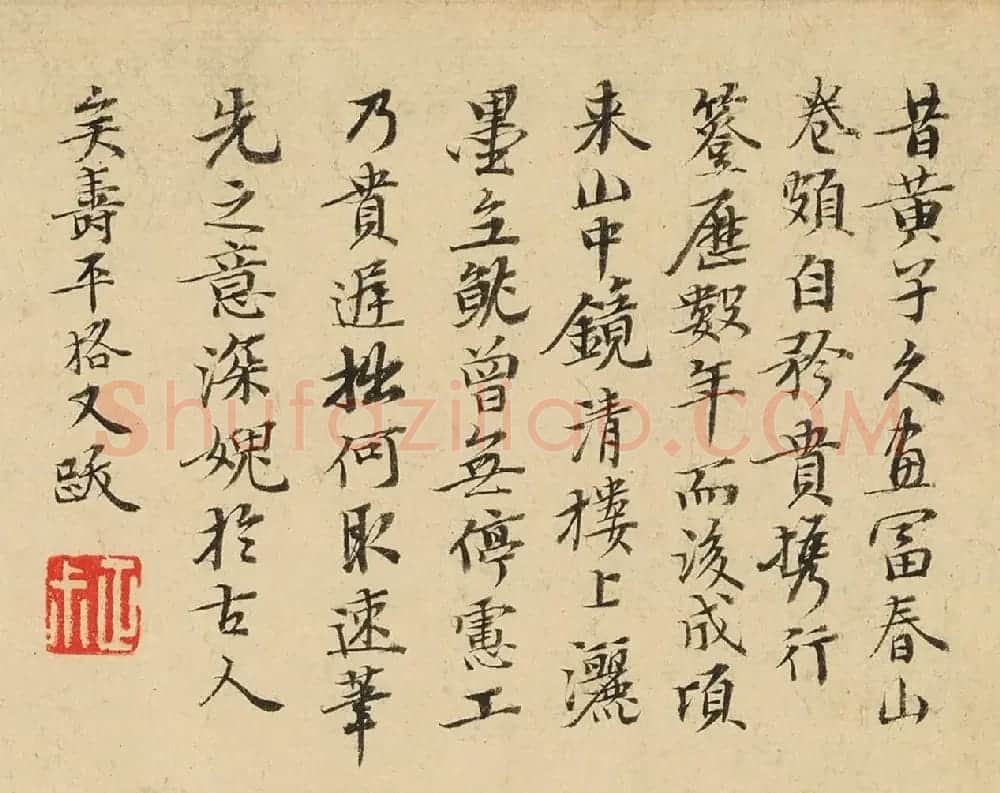 昔黃子久畫富春山
卷頗自矜貴攜行
簦歷數年而後成頃
来山中鏡清樓上灑
墨立就曾無停慮工
乃貴遲拙何取速筆
先之意深媿於古人
矣壽平格又跋
Shufaziliao.COM